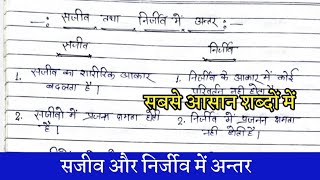 सजीव तथा निर्जीव में अन्तर
सजीव
निर्जीव
1. सजीव का शारीरिक आकार
बदलता है।
1. निर्जीव के आकार में कोई
परिवर्तन नही होता है।
सबसे आसान शब्दों में
2. सजीवो में प्रजनन क्षमता होती
है।
2. निर्जीव में प्रजनन क्षमता
नही होती है।
सजीव और निर्जीव में अन्तर